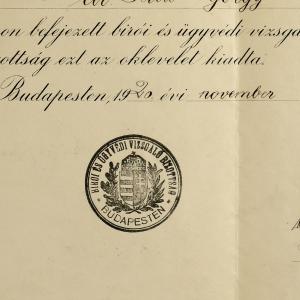 György
on befejezett birói és ügyvédi vizsga
ottság ezt az oklevelet kiadta.
Budapesten, 1920 évi november
BIRÓI ÉS ÜGYVÉDI VIZSGÁLÓ BIZOTTSÁG
BUDAPESTEN